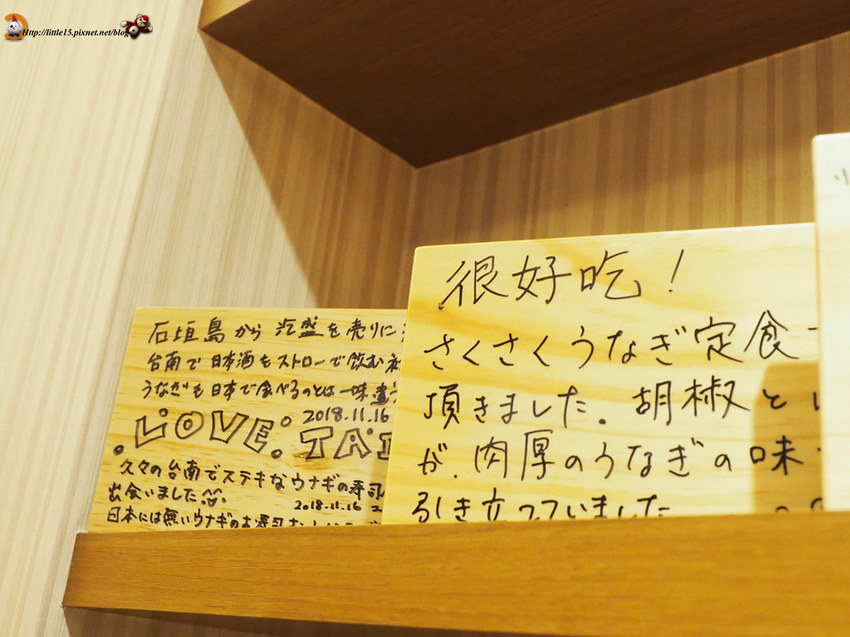 Http://little15.pixnet.net/blog
石垣島から 泡盛を売りに
台南で日本酒もストローで飲む
うなぎも日本で食べるのとは一味違う
2018.11.16
LOVE TAI
久々の台南でステキなウナギの寿司
出会いました
2018.11.16
日本には無いウナギのお寿司
很好吃!
さくさくうなぎ定食
頂きました。胡椒と
が、肉厚のうなぎの味
引き立っていました